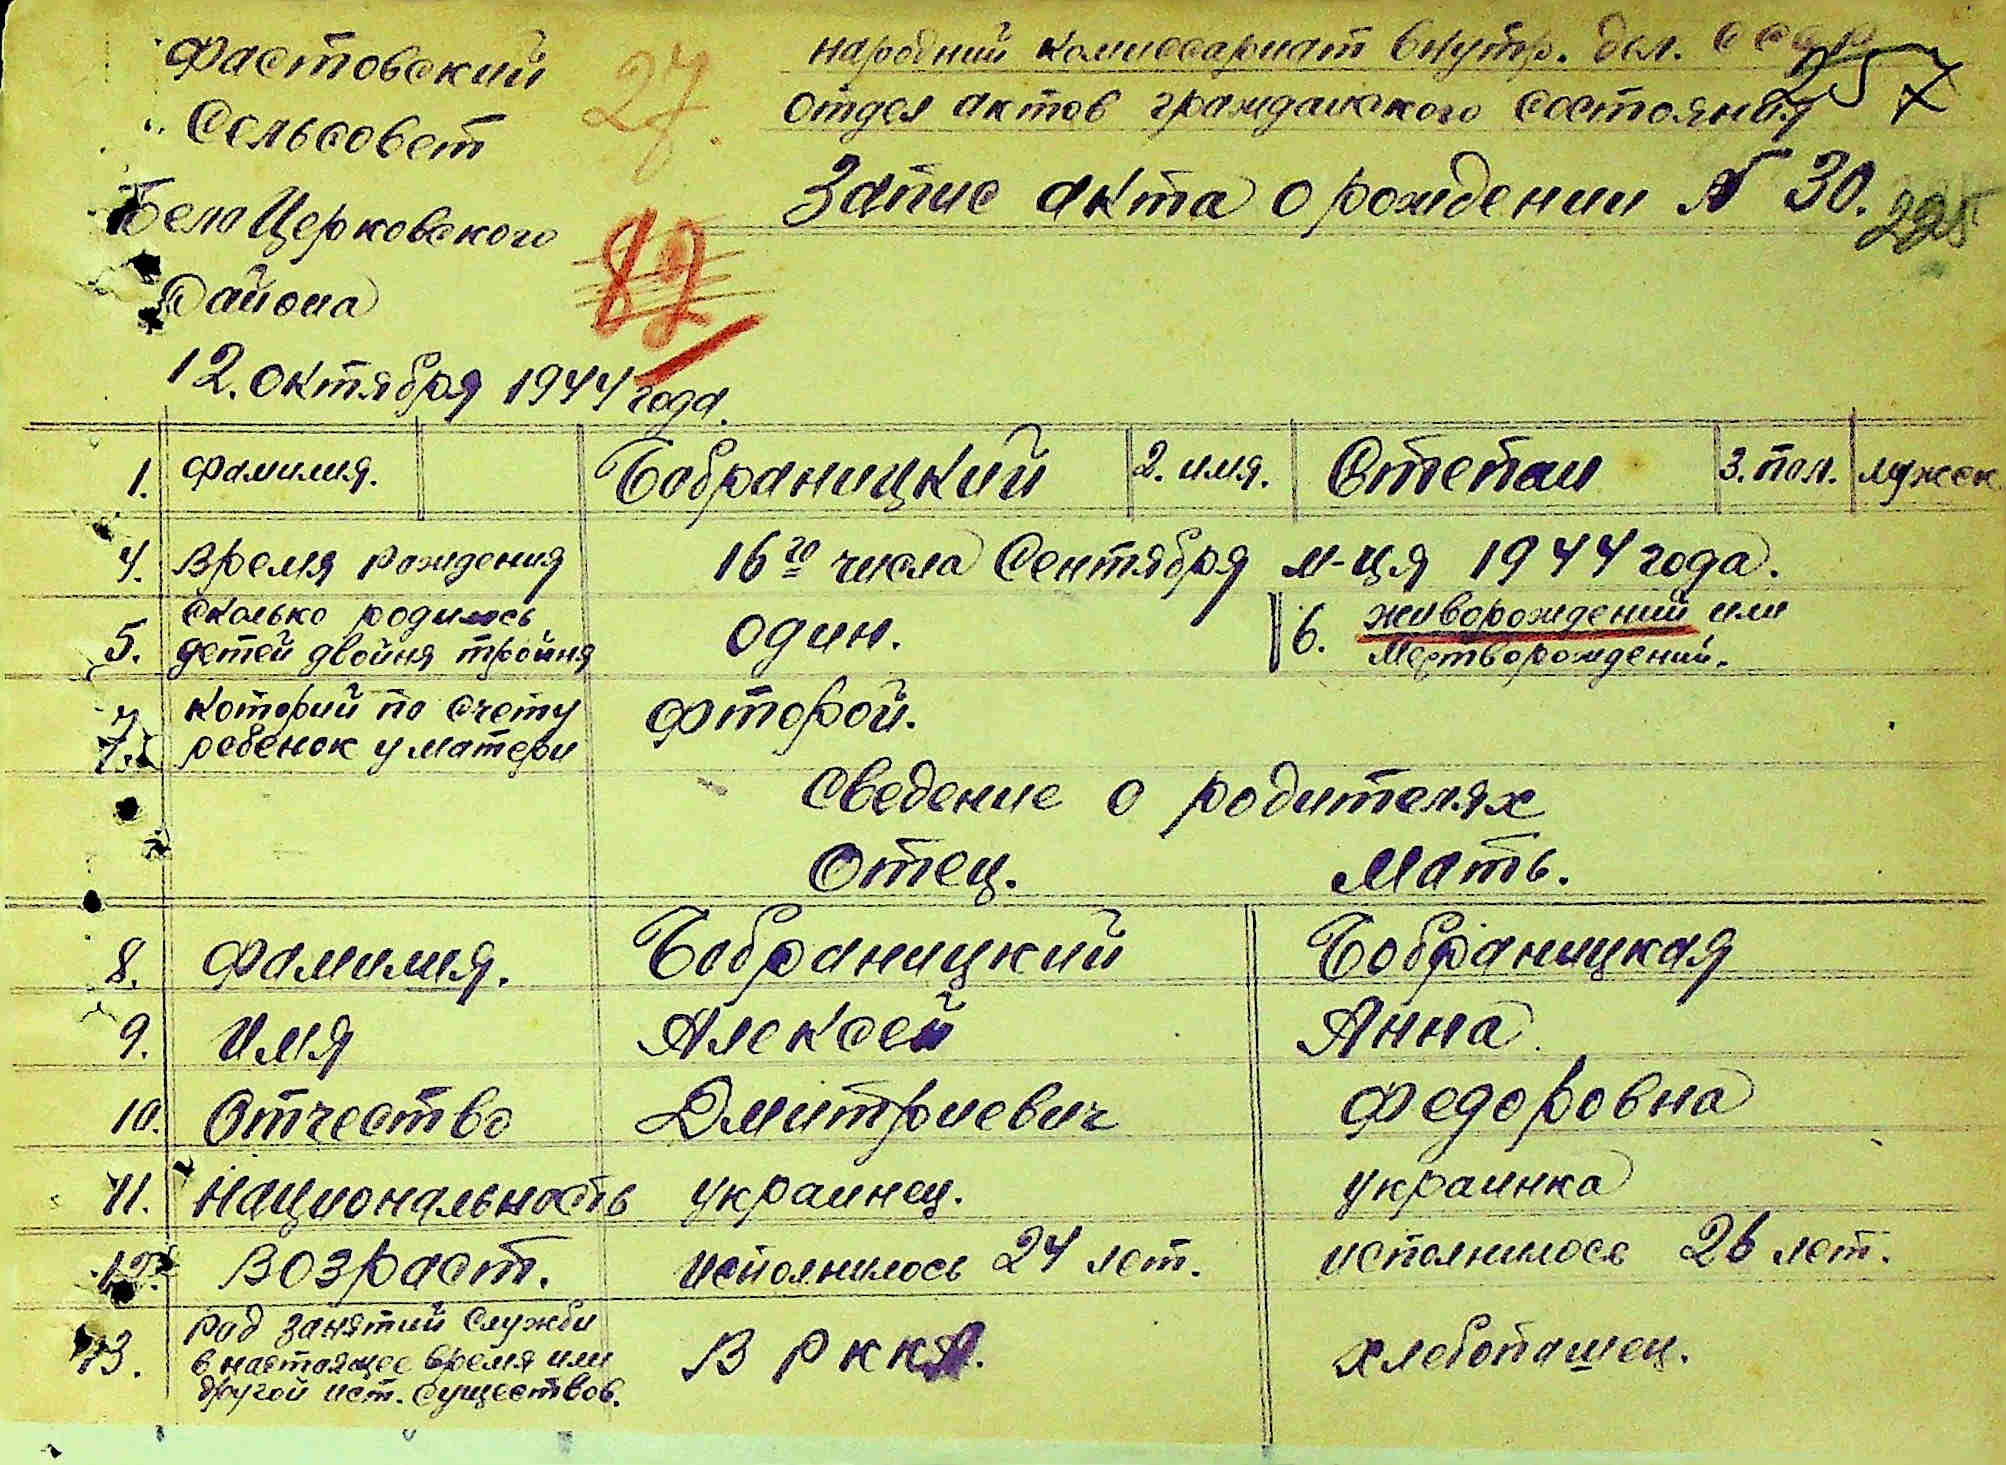 Фастовский
Сельсовет
БелаЦерковского
Района
12. октября 1944 года.
27.
82
народний комиссариат внутр. дел. СССР
отдел актов гражданского состояния
257
Запис акта о рождении № 30.
225
1. фамилия. Бобраницкий 2. имя. Степан 3. пол. мужск
4. время рождения 16го числа Сентября м-ця 1944 года.
5. сколько родилось
детей двойня тройня один. 6. живорождений или
мертворождений.
7. которий по счету
7. ребенок у матери фторой.
сведение о родителях
Отец. Мать.
8. Фамилия. Бобраницкий Бобраницкая
9. Имя Алексей Анна
10. Отчество Дмитриевич Федоровна
11. Националъность украинец. украинка
12. Возраст. исполнилось 24 лет. исполнилось 26 лет.
13. рад занятий служби
в настоящее время или
другой ист. существов. В РККА. хлебопашец.